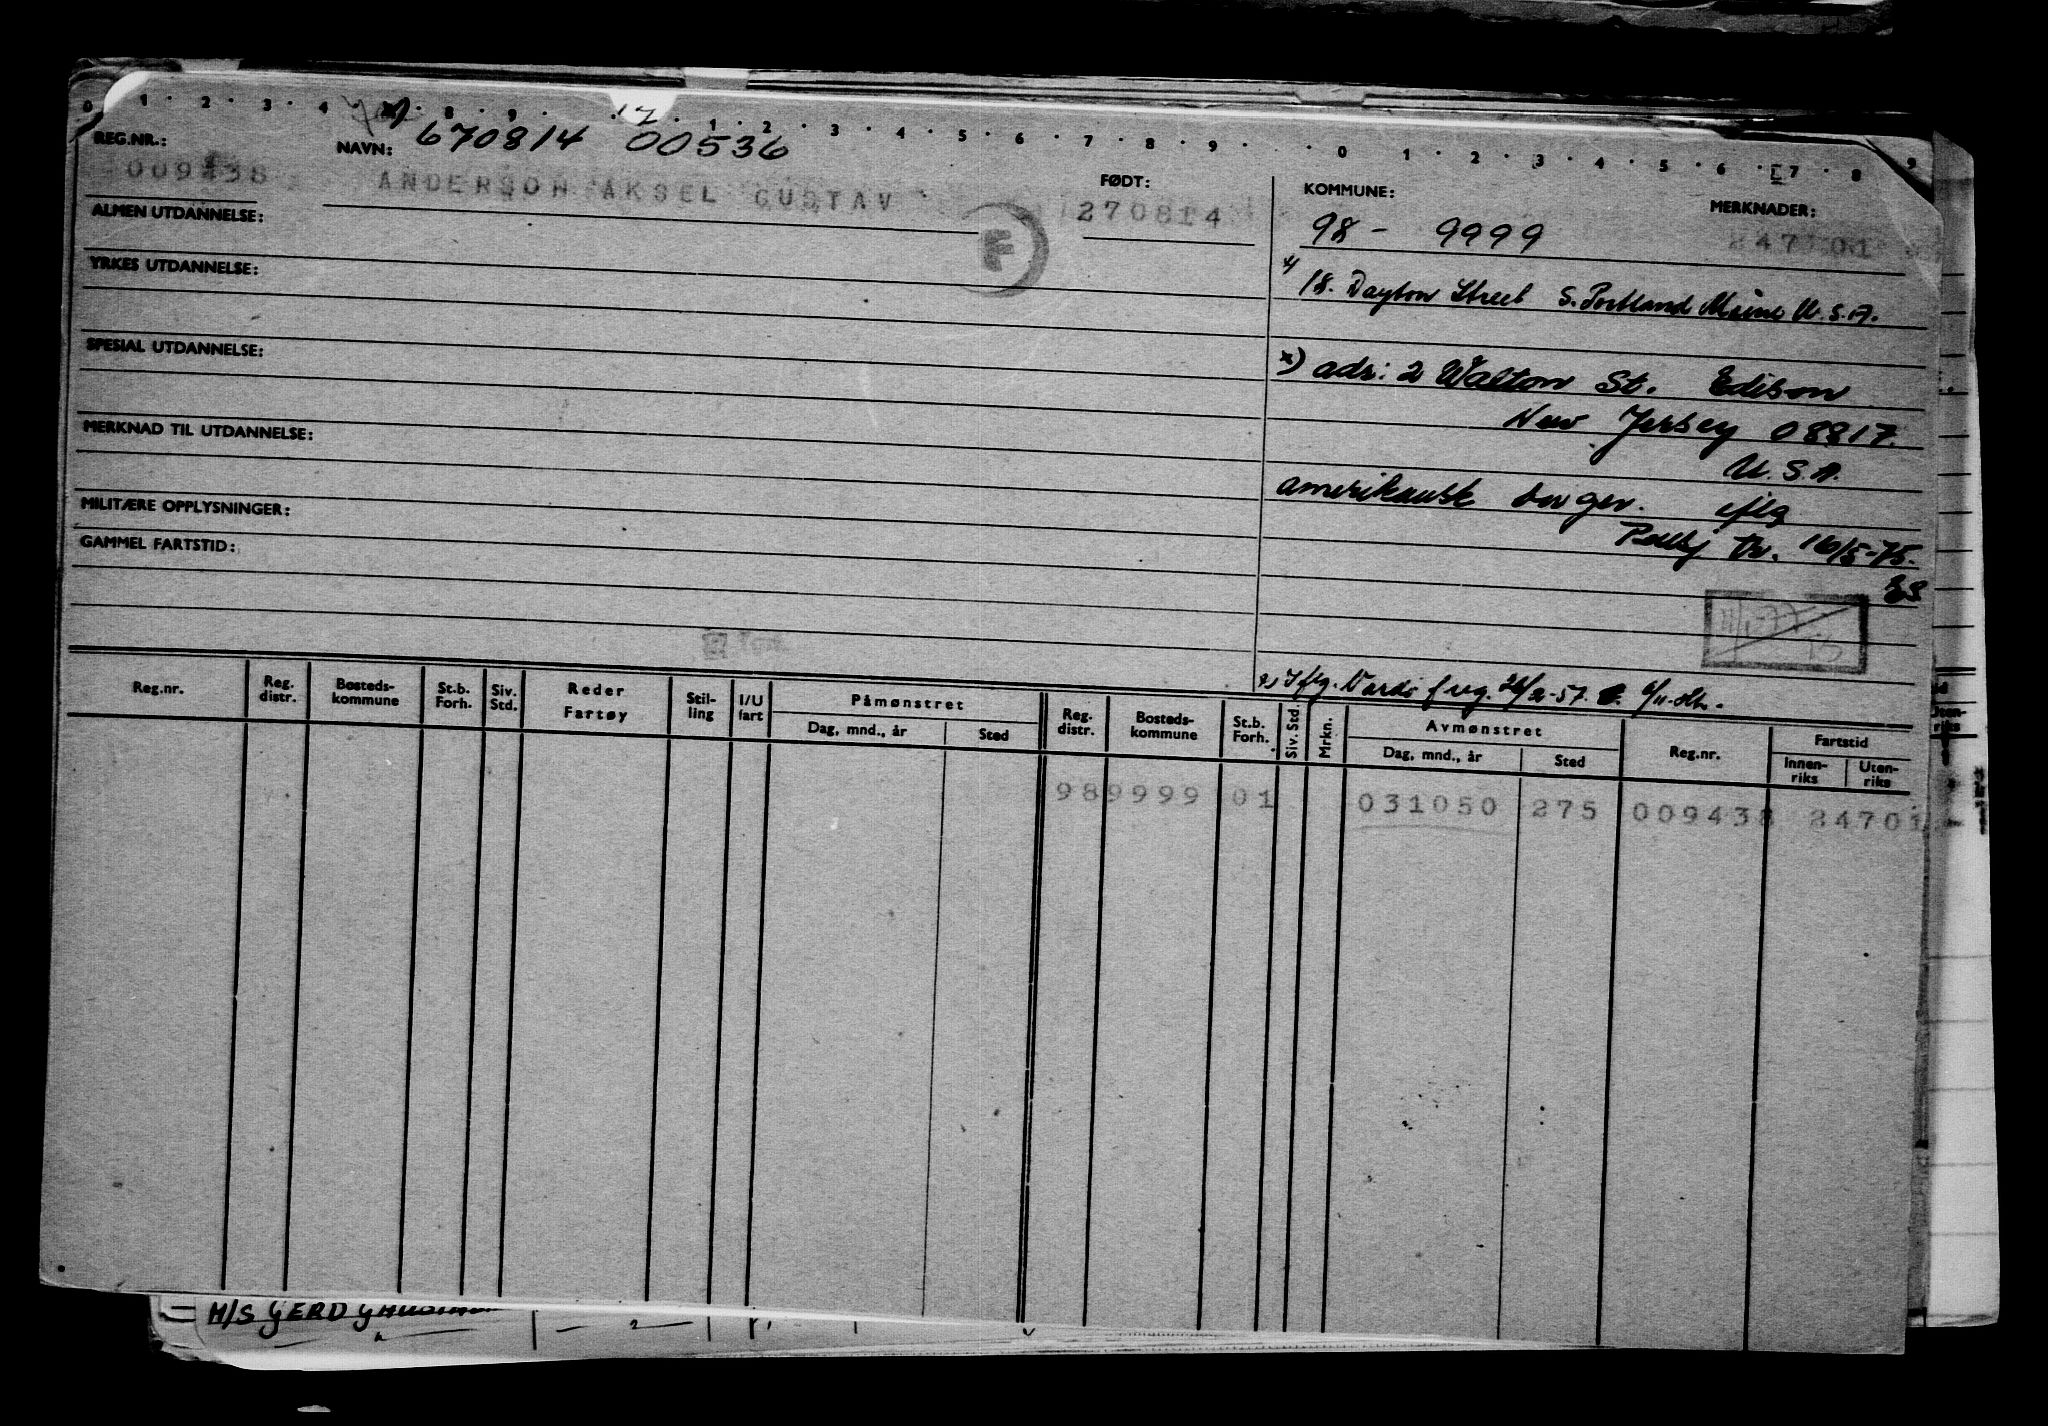 0 1 2 3 4 8 9 12 1 2 3 4 5 6 7 8 9 0 1 2 3 4 5 6 7 8 9
REG.NR.: NAVN: 670814 00536
009438 ANDERSON AKSEL GUSTAV FØDT: 270814 KOMMUNE: MERKNADER:
98 - 9999
ALMEN UTDANNELSE:
F
18. Dayton Street S. Portland Maine U.S.A.
YRKES UTDANNELSE:
x) adr: 2 Walton St. Edison
SPESIAL UTDANNELSE:
New Jersey 08817.
U.S.A.
MERKNAD TIL UTDANNELSE:
amerikansk borger. iflg
MILITÆRE OPPLYSNINGER:
16/5-75.
GAMMEL FARTSTID:
11/1-77
Iflg. Vardø
Reg.nr. Reg. distr. Bosteds-kommune St.b. Forh. Siv. Std. Reder Fartøy Stil-ling I/U fart Påmønstret Dag, mnd., år Sted Reg. distr. Bosteds-kommune St.b. Forh. Siv. Std. Mrkn. Avmønstret Dag, mnd., år Sted Reg.nr. Fartstid Innen-riks Uten-riks
989999 01 031050 275 009438 84701
M/S GERD